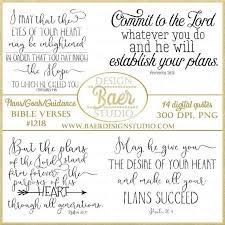 I may that the
EYES OF YOUR HEART
may be enlightened
IN ORDER THAT YOU MAY KNOW
the Hope
to which He has called you
Commit to the Lord
whatever you do
and he will
establish your plans.
Proverbs 16:3
Plans/Goals/Guidance
BIBLE VERSES
#1218
DESIGN
Baer
STUDIO
WWW.BAERDESIGNSTUDIO.COM
14 digital quotes
300 DPI, PNG
But the plans
of the Lord stand
firm forever the
purposes of his
HEART
through all generations
Psalm 33:11
May he give you
THE DESIRE OF YOUR HEART
and make all your
PLANS SUCCEED
Psalm 20:4